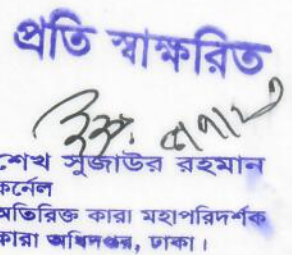 প্রতি স্বাক্ষরিত
শেখ সুজাউর রহমান
কর্নেল
অতিরিক্ত কারা মহাপরিদর্শক
কারা অধিদপ্তর, ঢাকা।